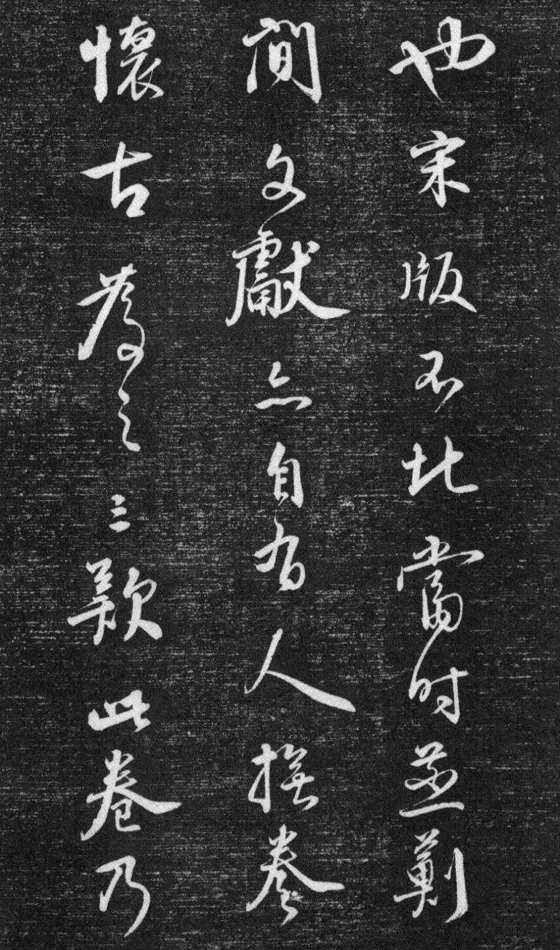 也宋版不北當时並薊
間文獻亦自有人撫卷
懷古為之三歎此卷乃